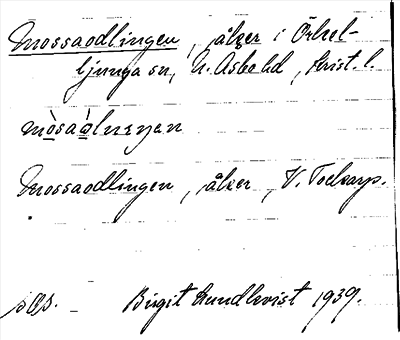 Mossaodlingen, åker i Örkel-
ljunga sn, N. Åsbo hd, Krist. l.
mòsaòlnıŋan
Mossaodlingen, åker, V. Toekarp.
sØs. - Birgit Lundkvist 1939.